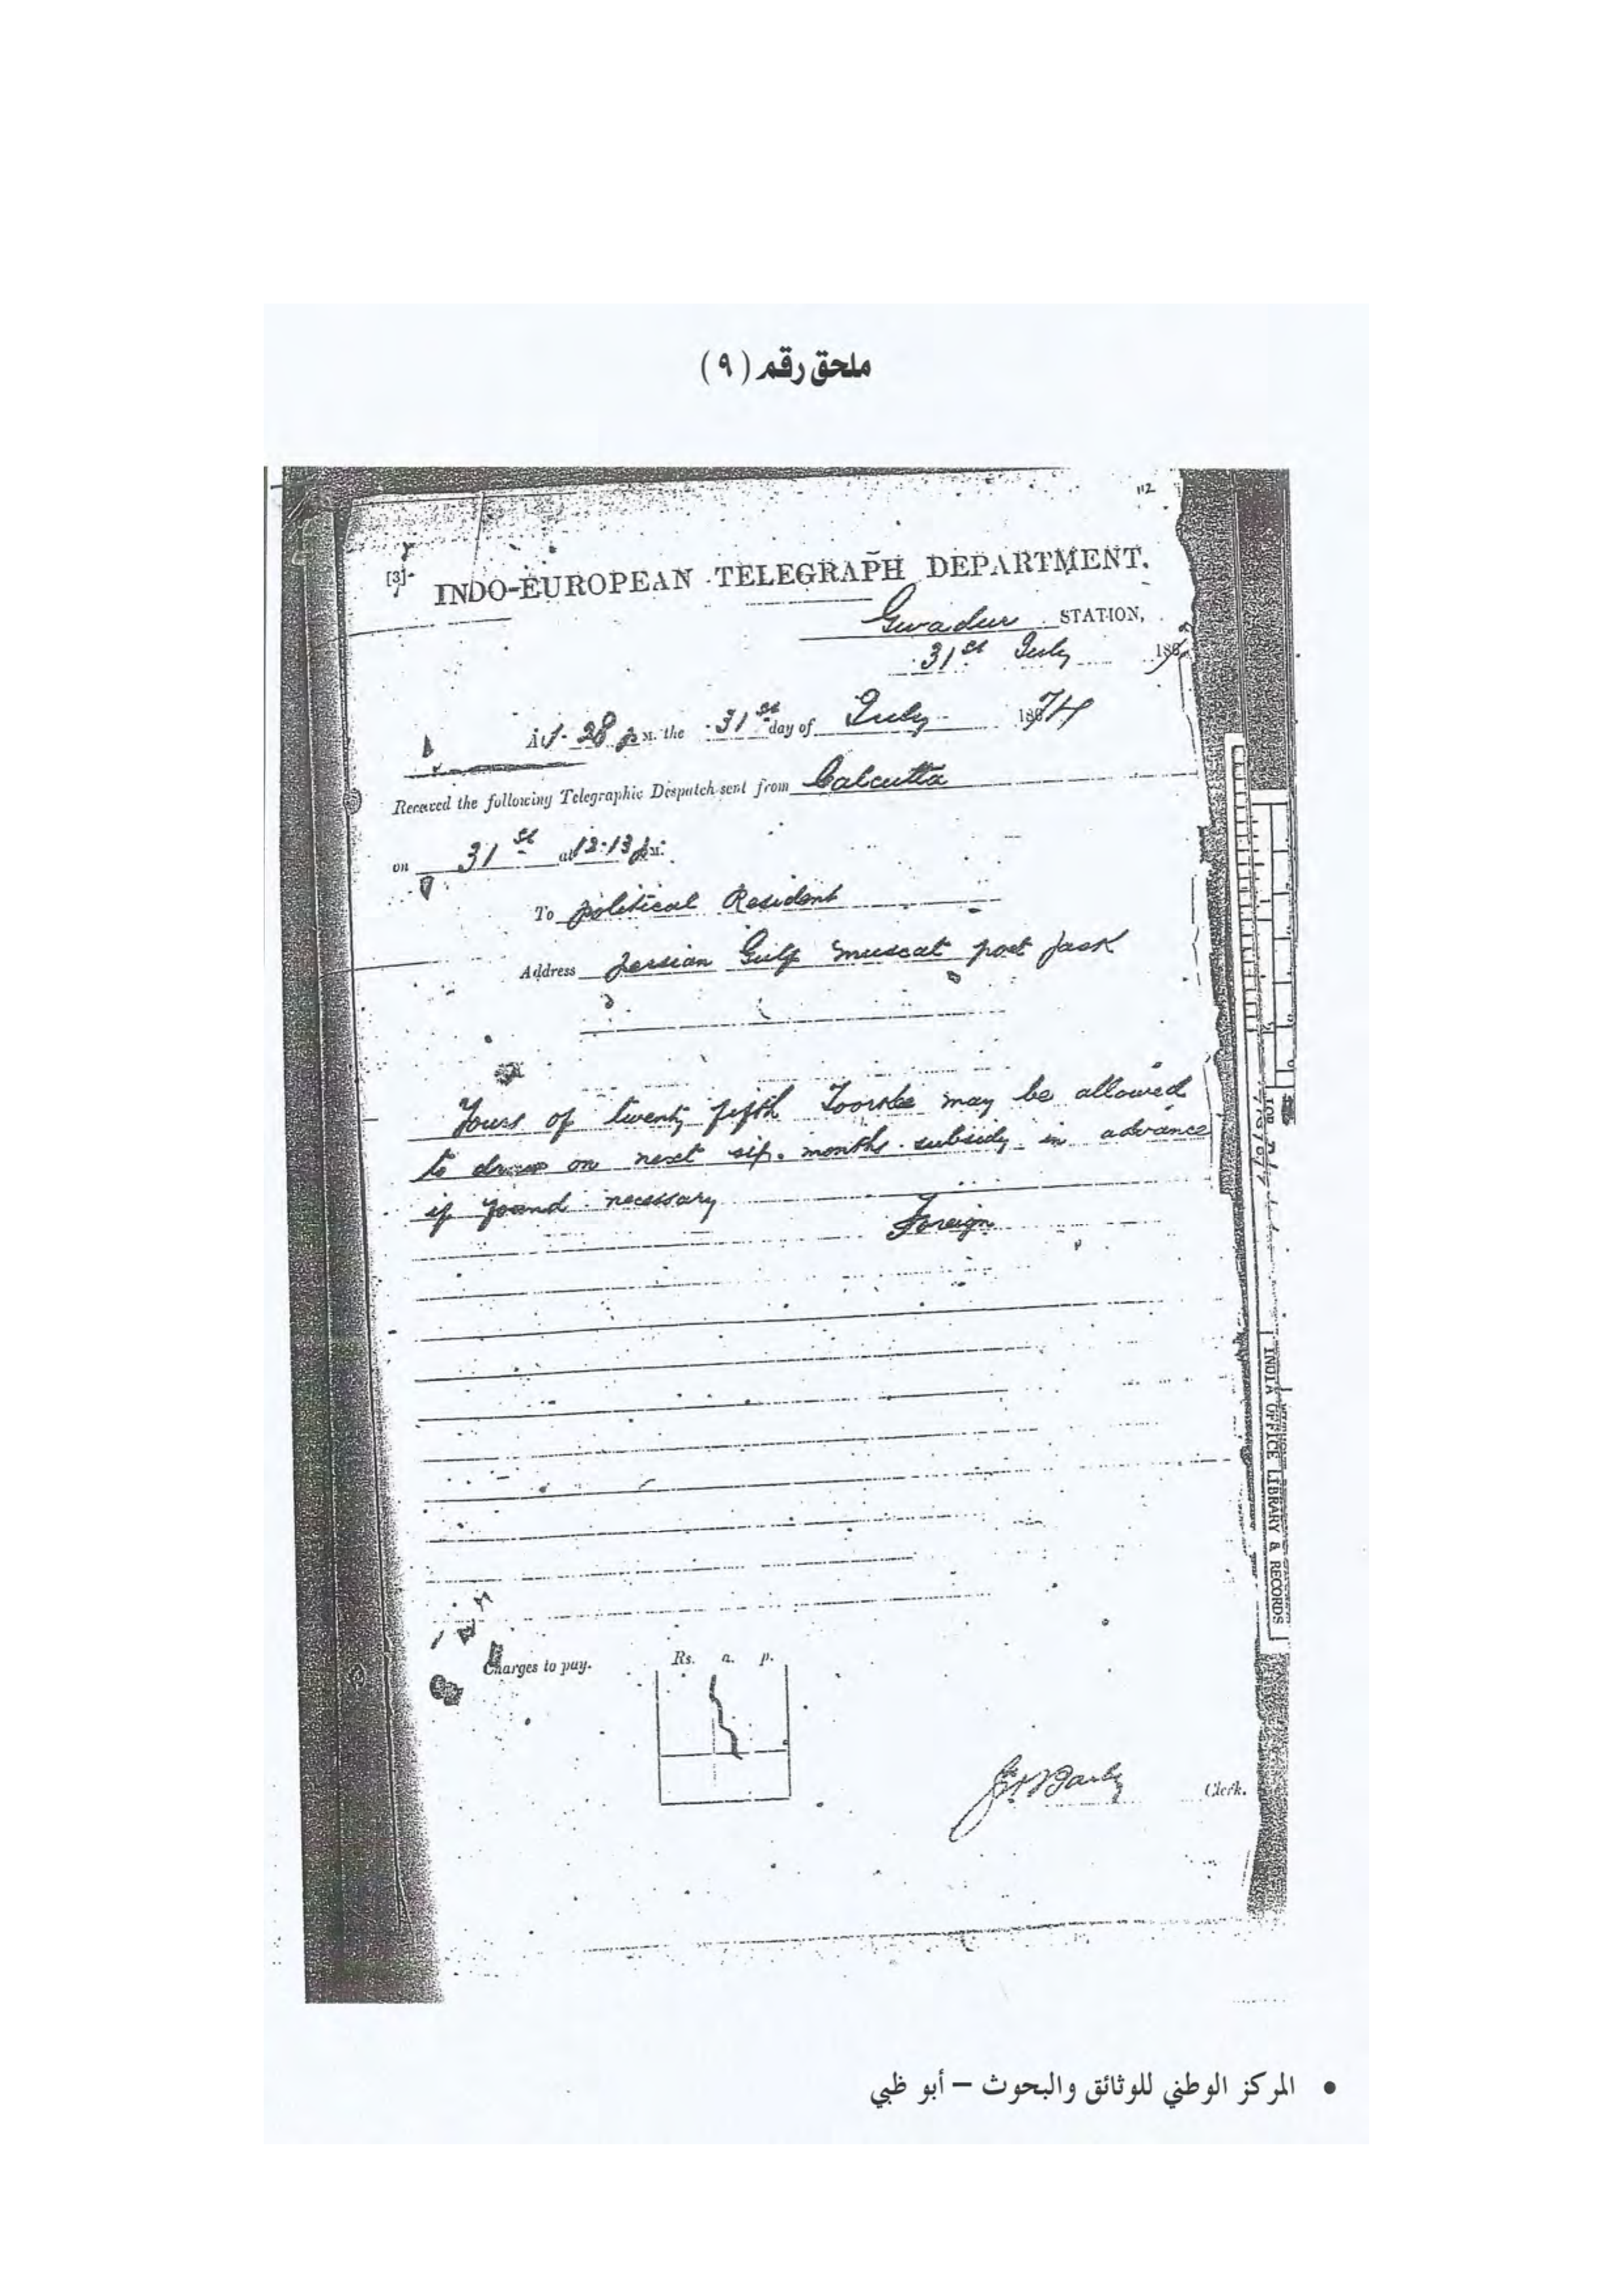 ملحق رقم (٩)
112
[3]
INDO-EUROPEAN TELEGRAPH DEPARTMENT.
Gwadur STATION,
31st July 187
At 1-28 p M. the 31st day of July 1874
Received the following Telegraphic Despatch sent from Calcutta
on 31st at 12-13 p M.
To political Resident
Address persian Gulf muscat post Jask
Yours of twenty fifth Toorkee may be allowed
to draw on next six months subsidy in advance
if found necessary
Foreign
Charges to pay.
Rs. a. p.
Clerk.
INDIA OFFICE LIBRARY & RECORDS
• المركز الوطني للوثائق والبحوث – أبو ظبي